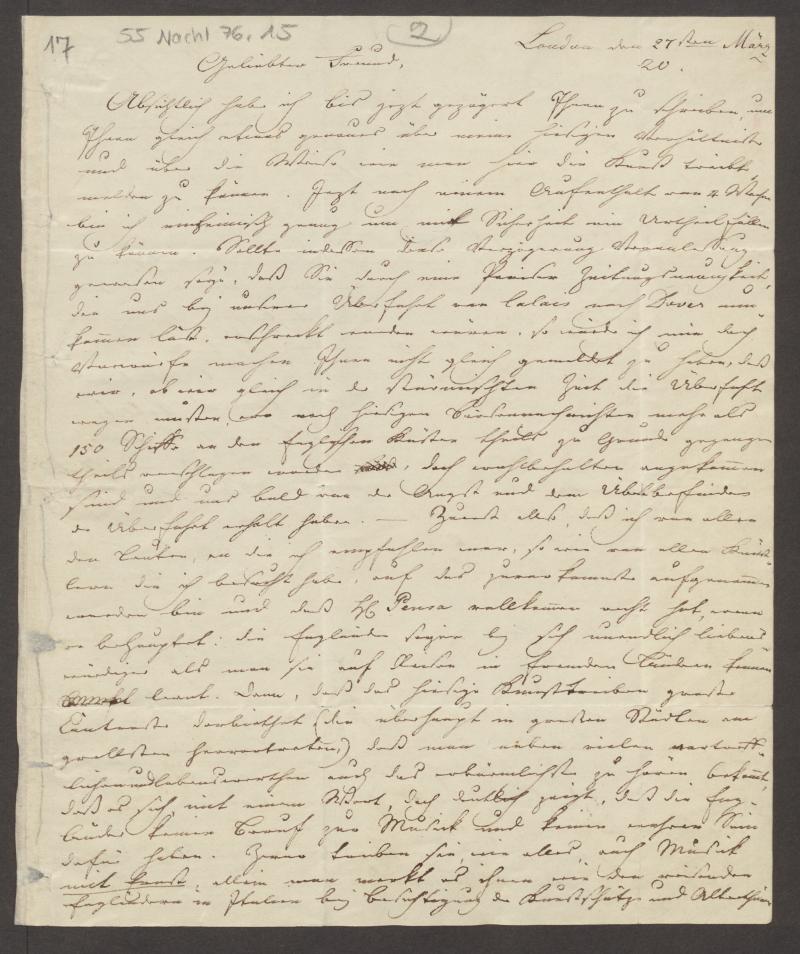 17
55 Nachl 76, 15
2
London den 27sten März
20.
Geliebter Freund,
Absichtlich habe ich bis jezt gezögert Ihnen zu schreiben, um
Ihnen gleich etwas genaues über meine hiesigen Verhältnisse
und über die Weise wie man hier die Kunst treibt
melden zu können. Jezt nach einem Aufenthalt von 4 Wochen
bin ich einheimisch genug um mit Sicherheit ein Urtheil fällen
zu können. Sollte indessen diese Verzögerung Veranlassung
gewesen seyn, daß Sie durch eine Pariser Zeitungsneuigkeit,
die uns bey unserer Überfahrt von Calais nach Dover um-
kommen läst, erschreckt worden wären, so würde ich mir doch
Vorwürfe machen Ihnen nicht gleich gemeldet zu haben, daß
wir, ob wir gleich in der stürmischten Zeit die Überfahrt
wagen musten, wo nach hiesigen mehr als
150 Schiffe an den Englischen Küsten theils zu Grunde gegangen
theils verschlagen worden, doch wohlbehalten angekommen
sind und uns bald von der Angst und dem Übelbefinden
der Überfahrt erholt haben. — Zuerst also, daß ich von allen
den Leuten, an die ich empfohlen war, so wie von allen Künst-
lern die ich besucht habe, auf das zuvorkommenste aufgenommen
worden bin und daß H Pensa vollkommen recht hat, wenn
er behauptet: die Engländer seyen bey sich unendlich liebens-
würdiger als man sie auf Reisen in fremden Ländern kennen
lernt. Dann, daß das hiesige Kunsttreiben große
Contraste darbiethet (die überhaupt in großen Städten am
grellsten hervortreten,) daß man neben vielen vortreff-
lichen und lobenswerthen auch das erbärmlichste zu hören bekömt,
daß es sich mit einem Wort, doch deutlich zeigt, daß die Eng-
länder keinen Beruf zur Musick und keinen wahren Sinn
dafür haben. Zwar treiben sie, wie alles auch Musick
mit Ernst, allein man merkt es ihnen wie den reisenden
Engländern in Italien bey Besichtigung der Kunstschätze und Alterthümer